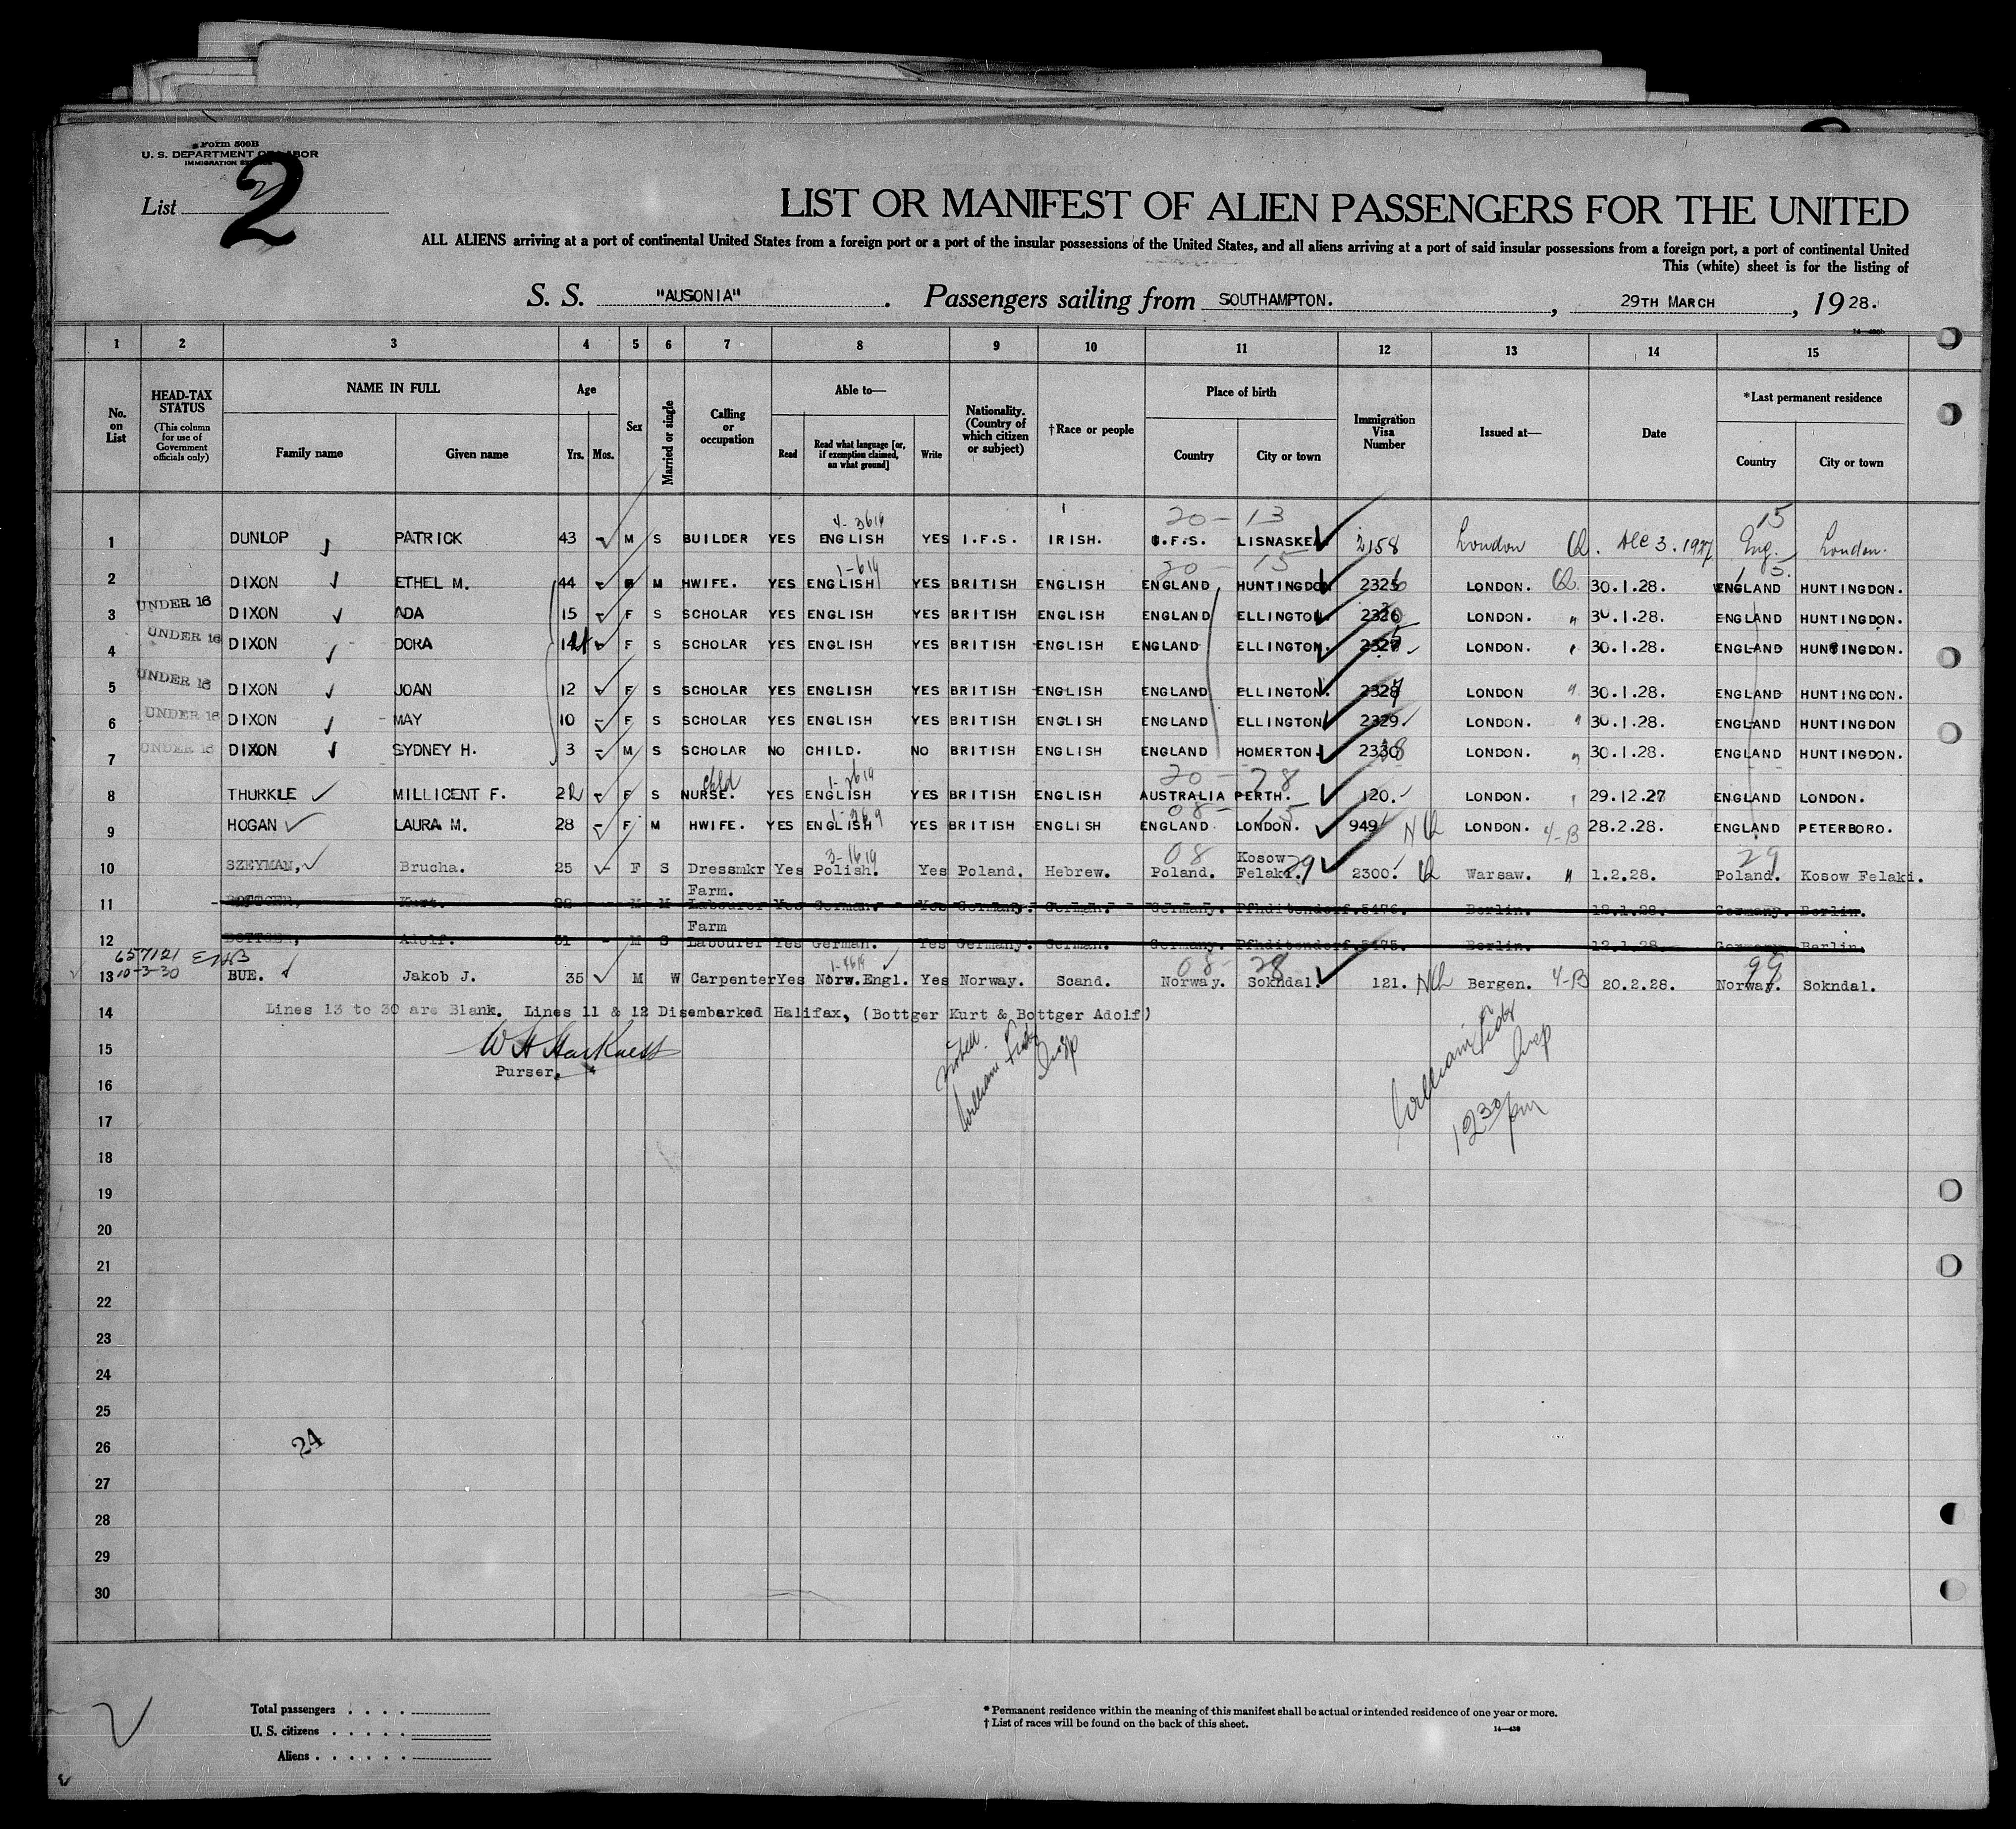 Form 500B
U. S. DEPARTMENT OF LABOR
IMMIGRATION SERVICE
List 2
LIST OR MANIFEST OF ALIEN PASSENGERS FOR THE UNITED
ALL ALIENS arriving at a port of continental United States from a foreign port or a port of the insular possessions of the United States, and all aliens arriving at a port of said insular possessions from a foreign port, a port of continental United
This (white) sheet is for the listing of
S. S. "AUSONIA". Passengers sailing from SOUTHAMPTON., 29TH MARCH, 1928.
1 2 3 4 5 6 7 8 9 10 11 12 13 14 15
No. on List
HEAD-TAX STATUS (This column for use of Government officials only)
NAME IN FULL Family name Given name
Age Yrs. Mos.
Sex
Married or single
Calling or occupation
Able to— Read Read what language [or, if exemption claimed, on what ground] Write
Nationality. (Country of which citizen or subject)
†Race or people
Place of birth Country City or town
Immigration Visa Number
Issued at—
Date
*Last permanent residence Country City or town
4-3614 20-13 15
1 DUNLOP PATRICK 43 M S BUILDER YES ENGLISH YES I.F.S. IRISH. I.F.S. LISNASKEA 2158 London Q. Dec 3. 1927 Eng. London.
1-614 20-15
2 DIXON ETHEL M. 44 M HWIFE. YES ENGLISH YES BRITISH ENGLISH ENGLAND HUNTINGDON 2325 LONDON. Q. 30.1.28. ENGLAND HUNTINGDON.
UNDER 16
3 DIXON ADA 15 F S SCHOLAR YES ENGLISH YES BRITISH ENGLISH ENGLAND ELLINGTON. 2326 LONDON. " 30.1.28. ENGLAND HUNTINGDON.
UNDER 16
4 DIXON DORA 14 F S SCHOLAR YES ENGLISH YES BRITISH ENGLISH ENGLAND ELLINGTON. 2327 LONDON. " 30.1.28. ENGLAND HUNTINGDON.
UNDER 16
5 DIXON JOAN 12 F S SCHOLAR YES ENGLISH YES BRITISH ENGLISH ENGLAND ELLINGTON. 2328 LONDON " 30.1.28. ENGLAND HUNTINGDON.
UNDER 16
6 DIXON MAY 10 F S SCHOLAR YES ENGLISH YES BRITISH ENGLISH ENGLAND ELLINGTON 2329. LONDON. " 30.1.28. ENGLAND HUNTINGDON
UNDER 16
7 DIXON SYDNEY H. 3 M S SCHOLAR NO CHILD. NO BRITISH ENGLISH ENGLAND HOMERTON. 2330 LONDON. " 30.1.28. ENGLAND HUNTINGDON.
20-78
8 THURKLE MILLICENT F. 22 F S NURSE. YES ENGLISH YES BRITISH ENGLISH AUSTRALIA PERTH. 120. LONDON. 29.12.27 ENGLAND LONDON.
08-15
9 HOGAN LAURA M. 28 F M HWIFE. YES ENGLISH YES BRITISH ENGLISH ENGLAND. LONDON. 949 NQ LONDON. 4-B 28.2.28. ENGLAND PETERBORO.
3-1614 08 29 29
10 SZEYMAN, Brucha. 25 F S Dressmkr Yes Polish. Yes Poland. Hebrew. Poland. Kosow Felaki. 2300. Q Warsaw. " 1.2.28. Poland. Kosow Felaki.
11 BOTTGER, Kurt. 28 - M M Farm. Labourer Yes German. Yes Germany. German. Germany. Pfhditendorf. 5476. Berlin. 12.1.28. Germany. Berlin.
12 BOTTGER, Adolf. 31 - M S Farm Labourer Yes German. Yes Germany. German. Germany. Pfhditendorf. 5475. Berlin. 12.1.28. Germany Berlin.
657121
10-3-30
08-28 99
13 BUE. Jakob J. 35 M W Carpenter Yes Norw. Engl. Yes Norway. Scand. Norway. Sokndal. 121. Bergen. 4-B 20.2.28. Norway. Sokndal.
14 Lines 13 to 30 are Blank. Lines 11 & 12 Disembarked Halifax, (Bottger Kurt & Bottger Adolf)
15 W H Harkness
Purser.
William Insp
1230 pm
16
17
18
19
20
21
22
23
24
25
26
27
28
29
30
24
Total passengers . . . .
U. S. citizens . . . . .
Aliens . . . . . .
* Permanent residence within the meaning of this manifest shall be actual or intended residence of one year or more.
† List of races will be found on the back of this sheet.
14—430